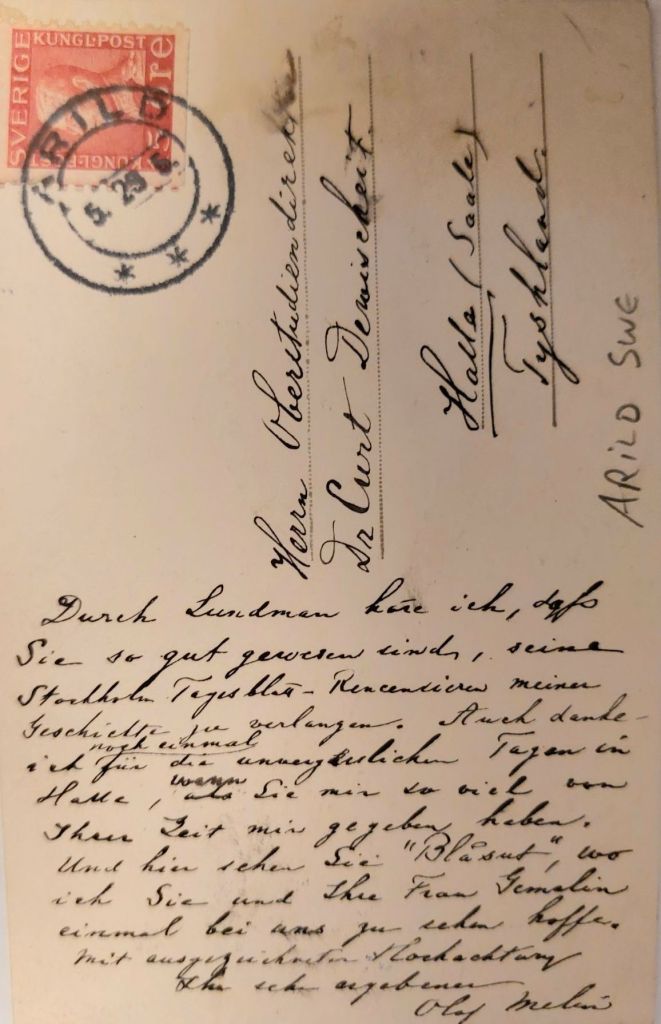 SVERIGE
KUNGL·POST
KUNGL·POST
ÖRE
ARILD
5. 29
Herrn Oberstudiendirektor
Dr Curt Dewischeit.
Halle (Saale)
Tyskland.
ARILD SWE
Durch Lundman höre ich, dass
Sie so gut gewesen sind, seine
Stockholm Tagesblatt - Rencensieren meiner
Geschichte zu verlangen. Auch danke
noch einmal
ich für die unvergesslichen Tagen in
wann
Halle, als Sie mir so viel von
Ihrer Zeit mir gegeben haben.
Und hier sehen Sie "Blåsut", wo
ich Sie und Ihre Frau Gemalin
einmal bei uns zu sehen hoffe.
Mit ausgezeichneter Hochachtung
Ihr sehr ergebener
Olof Melin